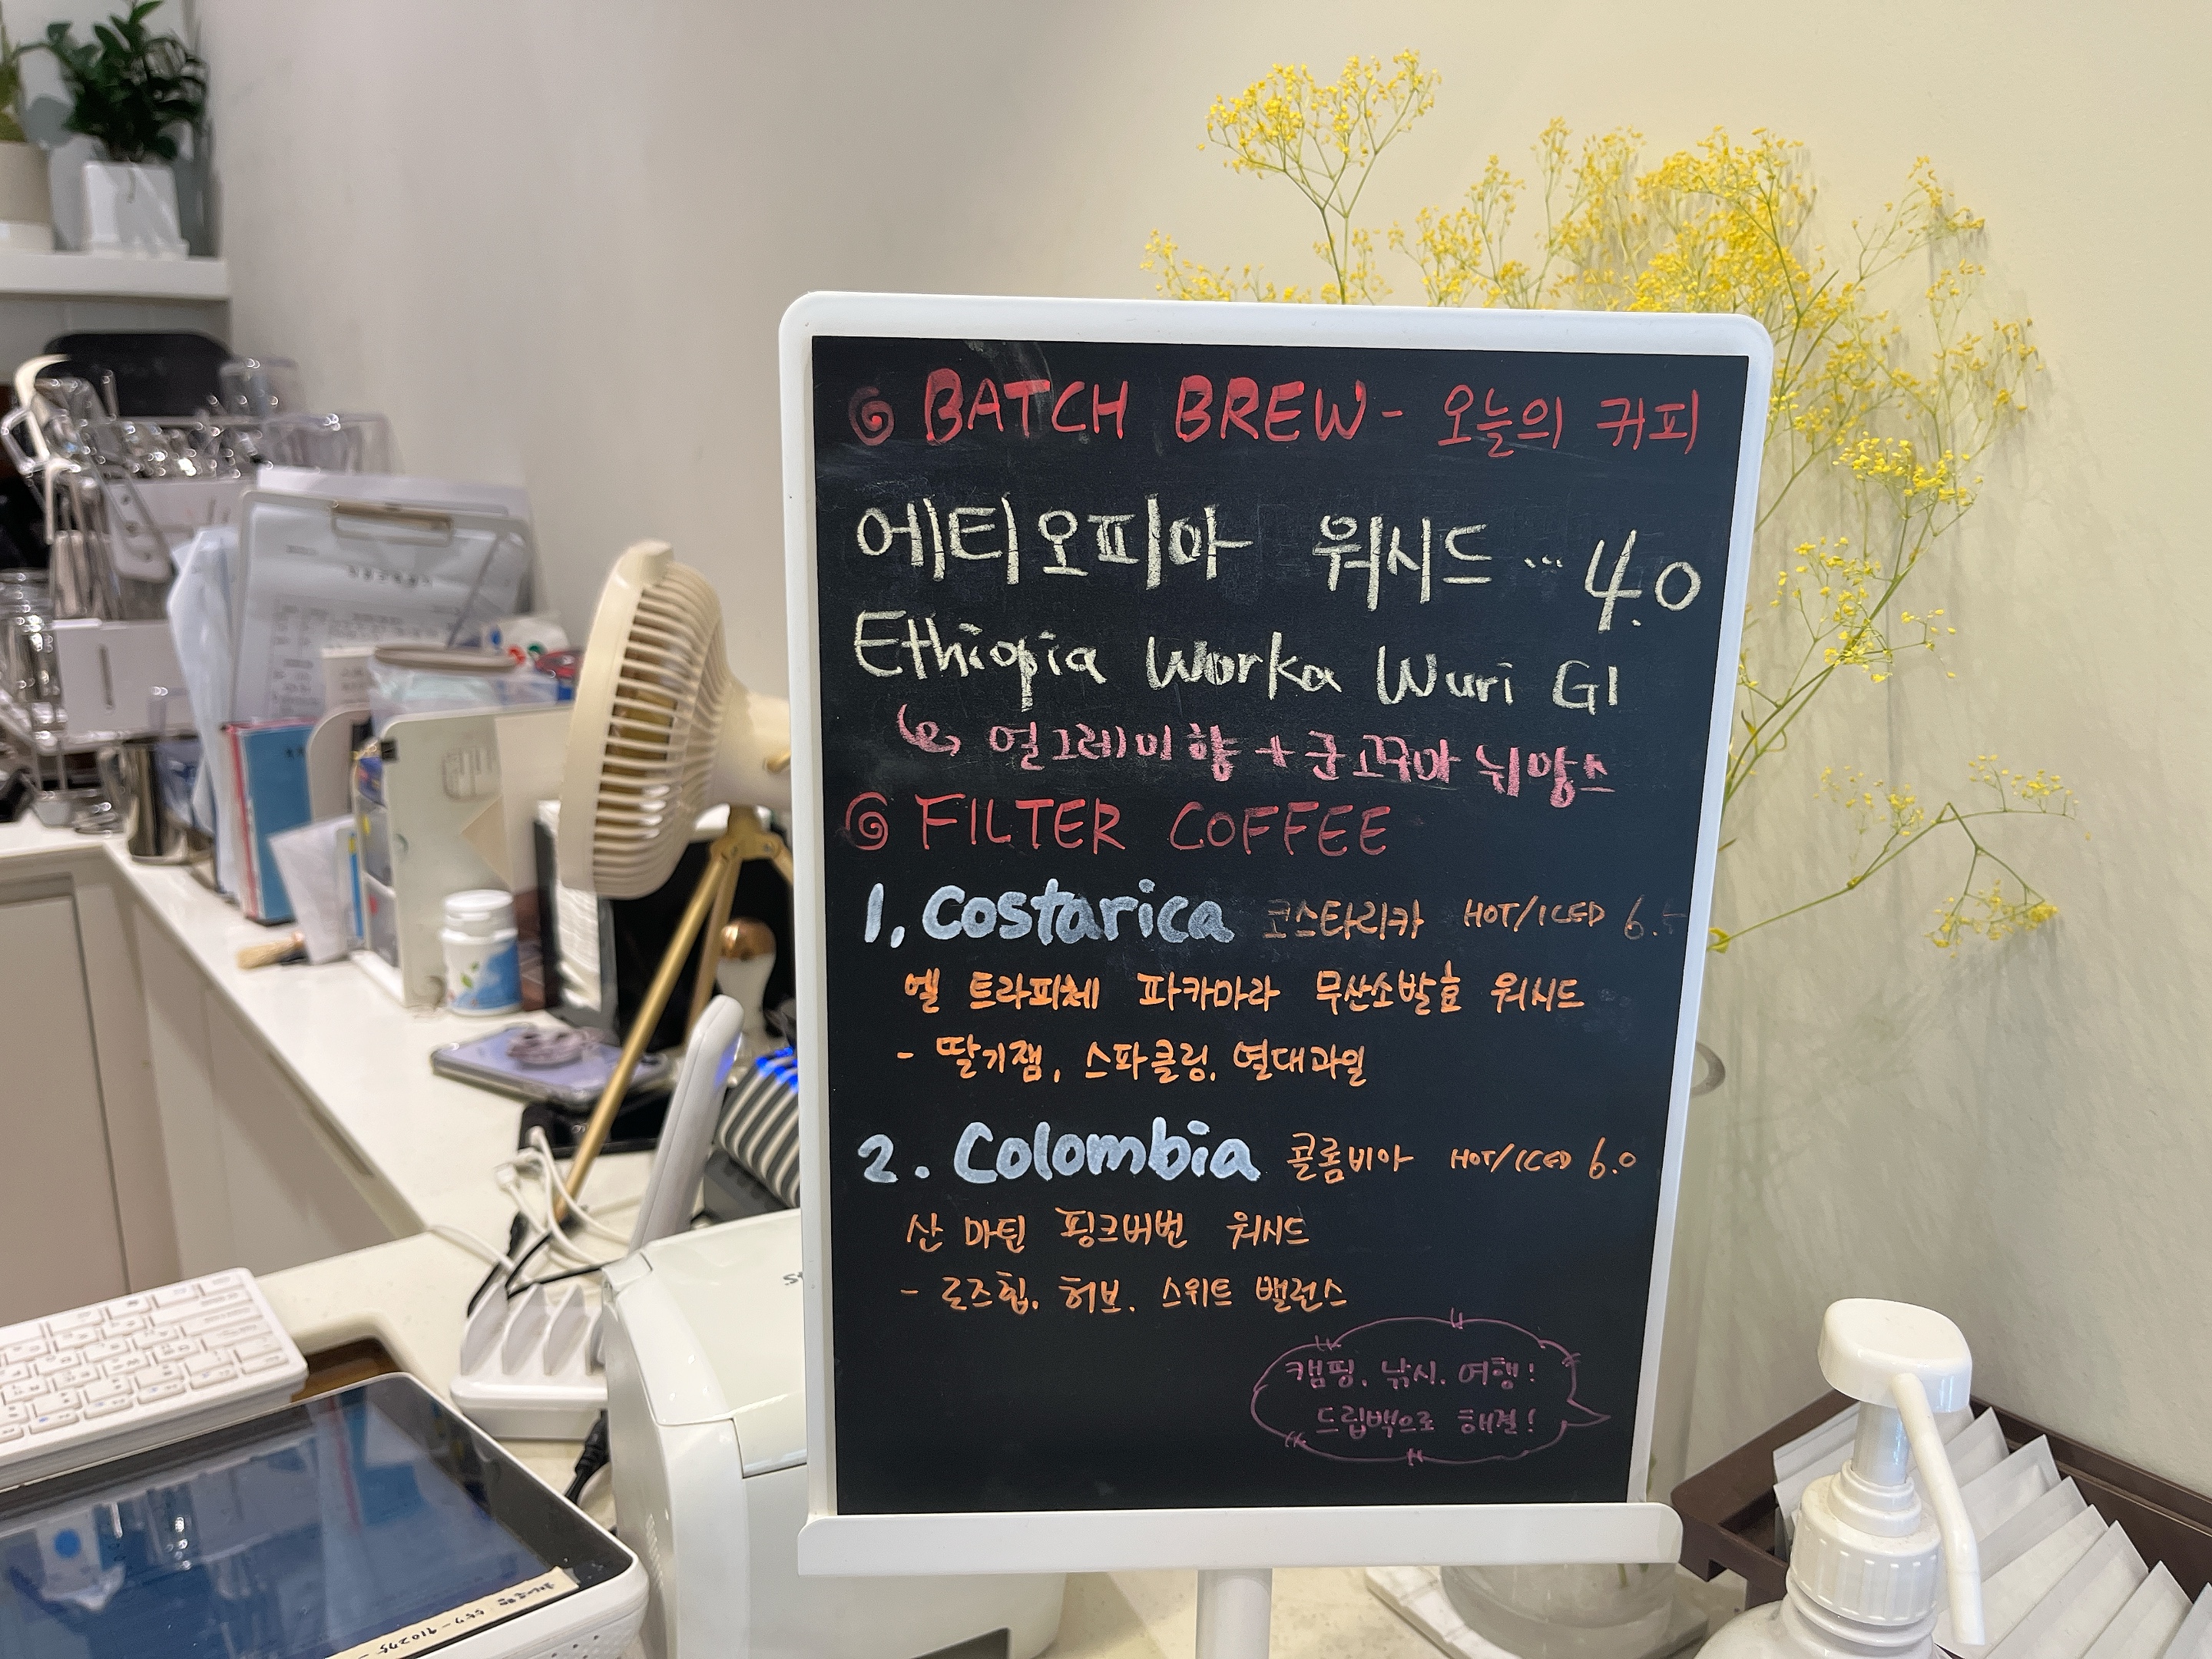 BATCH BREW - 오늘의 커피
에티오피아 워시드 ... 4.0
Ethiopia Worka Wuri G1
얼그레이향 + 군고구마 뉘앙스
FILTER COFFEE
1. Costarica 코스타리카 HOT/ICED 6.5
엘 트라피체 파카마라 무산소발효 워시드
- 딸기잼, 스파클링, 열대과일
2. Colombia 콜롬비아 HOT/ICED 6.0
산 마틴 핑크버번 워시드
- 로즈힙, 허브, 스위트 밸런스
캠핑, 낚시, 여행!
드립백으로 해결!